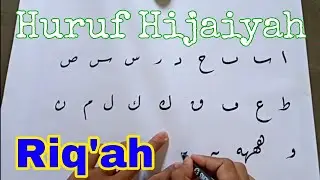 Huruf Hijaiyah
ا ب ب ح د ر س س ص
ط ع ف ق ك ك ل م ن
و ههه
Riq'ah